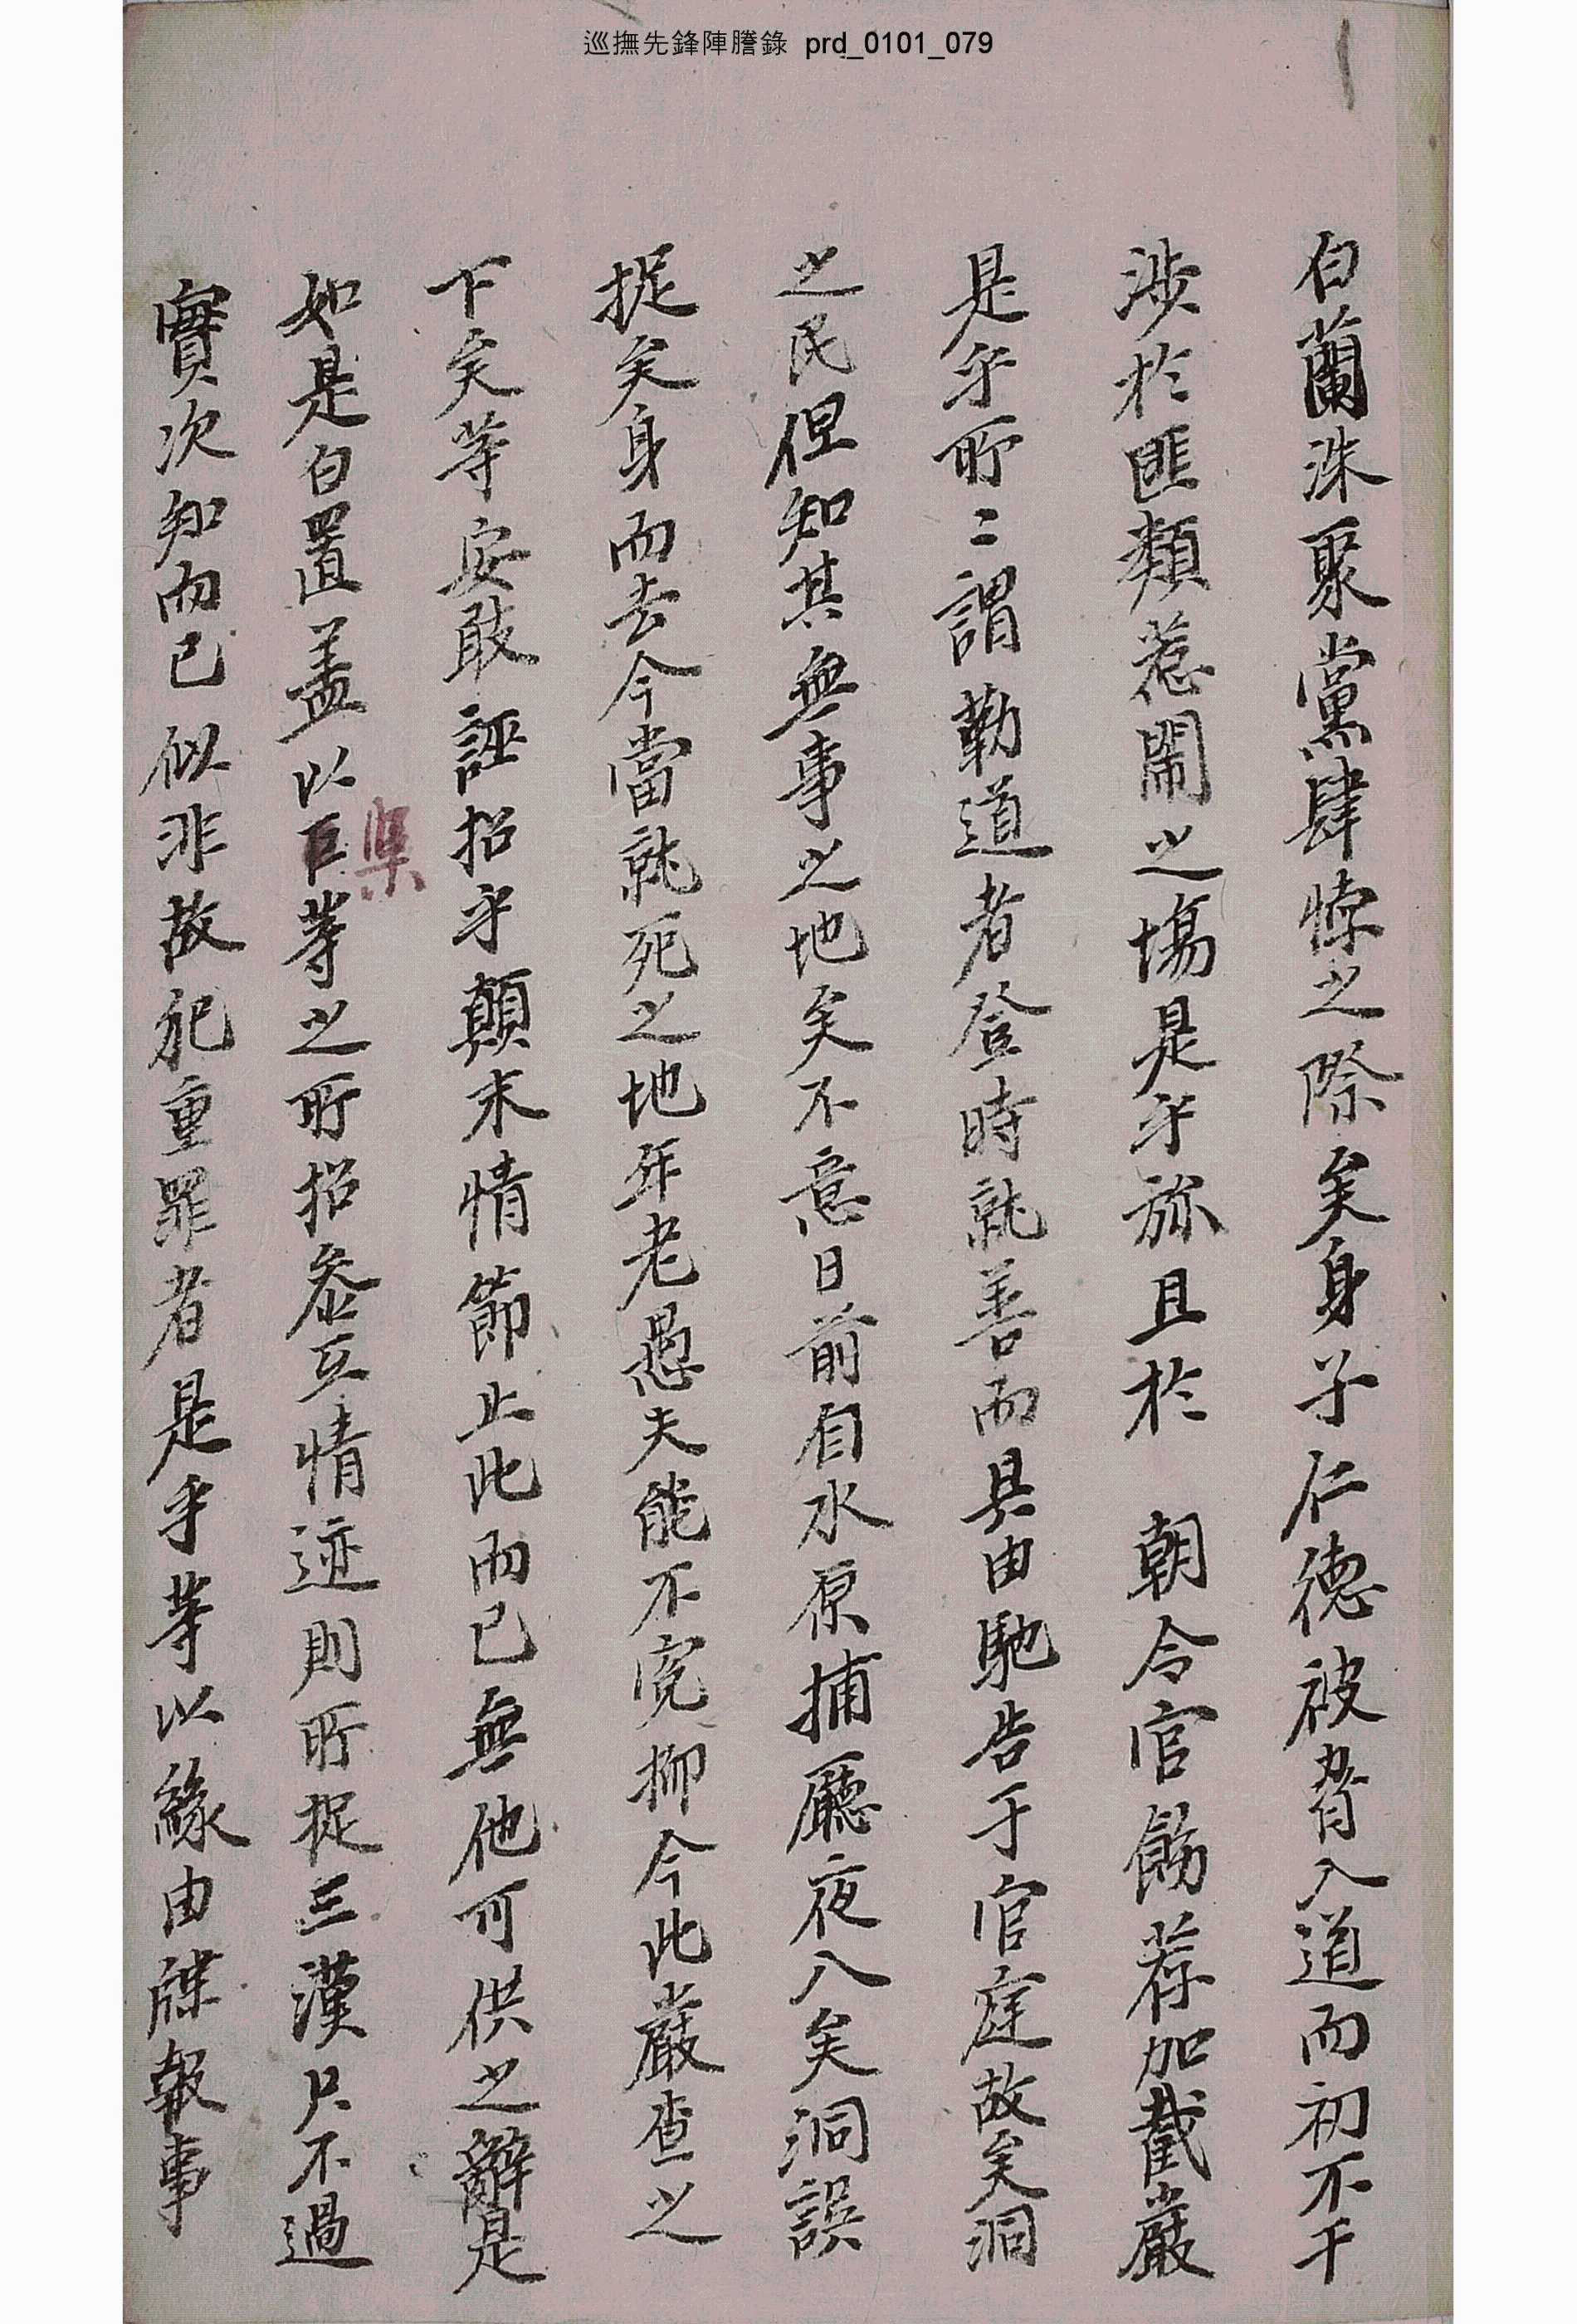 巡撫先鋒陣謄錄 prd_0101_079
白蘭洙聚黨肆悖之際矣身子仁德被脅入道而初不干
涉於匪類惹鬧之場是乎旀且於 朝令官飭荐加截嚴
是乎所二謂勒道者登時就善而具由馳告于官庭故矣洞
之民但知其無事之地矣不意日前自水原捕廳夜入矣洞誤
捉矣身而去今當就死之地年老愚夫能不寃抑今此嚴查之
下矣等安敢誣招乎顛末情節止此而已無他可供之辭是
如是白置盖以巨等之所招叅互情迹則所捉三漢只不過
渠
實次知而已似非故犯重罪者是乎等以緣由牒報事